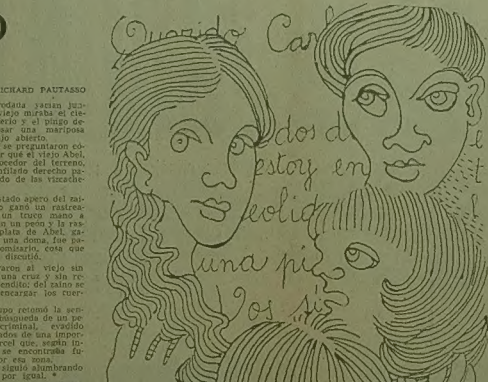 RICHARD PAUTASSO
rodada yacían jun-
viejo miraba el cie-
erlo y el pingo de-
sar una mariposa
jo abierto.
se preguntaron có-
r qué el viejo Abel,
ocedor del terreno,
nfilado derecho pa-
do de las vizcache-
stado apero del zai-
o ganó un rastrea-
un truco mano a
n un peón y la ras-
plata de Abel, ga-
una doma, fue pa-
omisario, cosa que
discutió.
raron al viejo sin
una cruz y sin re-
endito; del zaino se
encargar los cuer-
upo retomó la sen-
búsqueda de un pe-
criminal, evadido
ados de una impor-
rcel que, según in-
se encontraba fu-
or esa zona.
siguió alumbrando
por igual.
Querido Carl
dos d
estoy en
eolid
una pi
Vos si